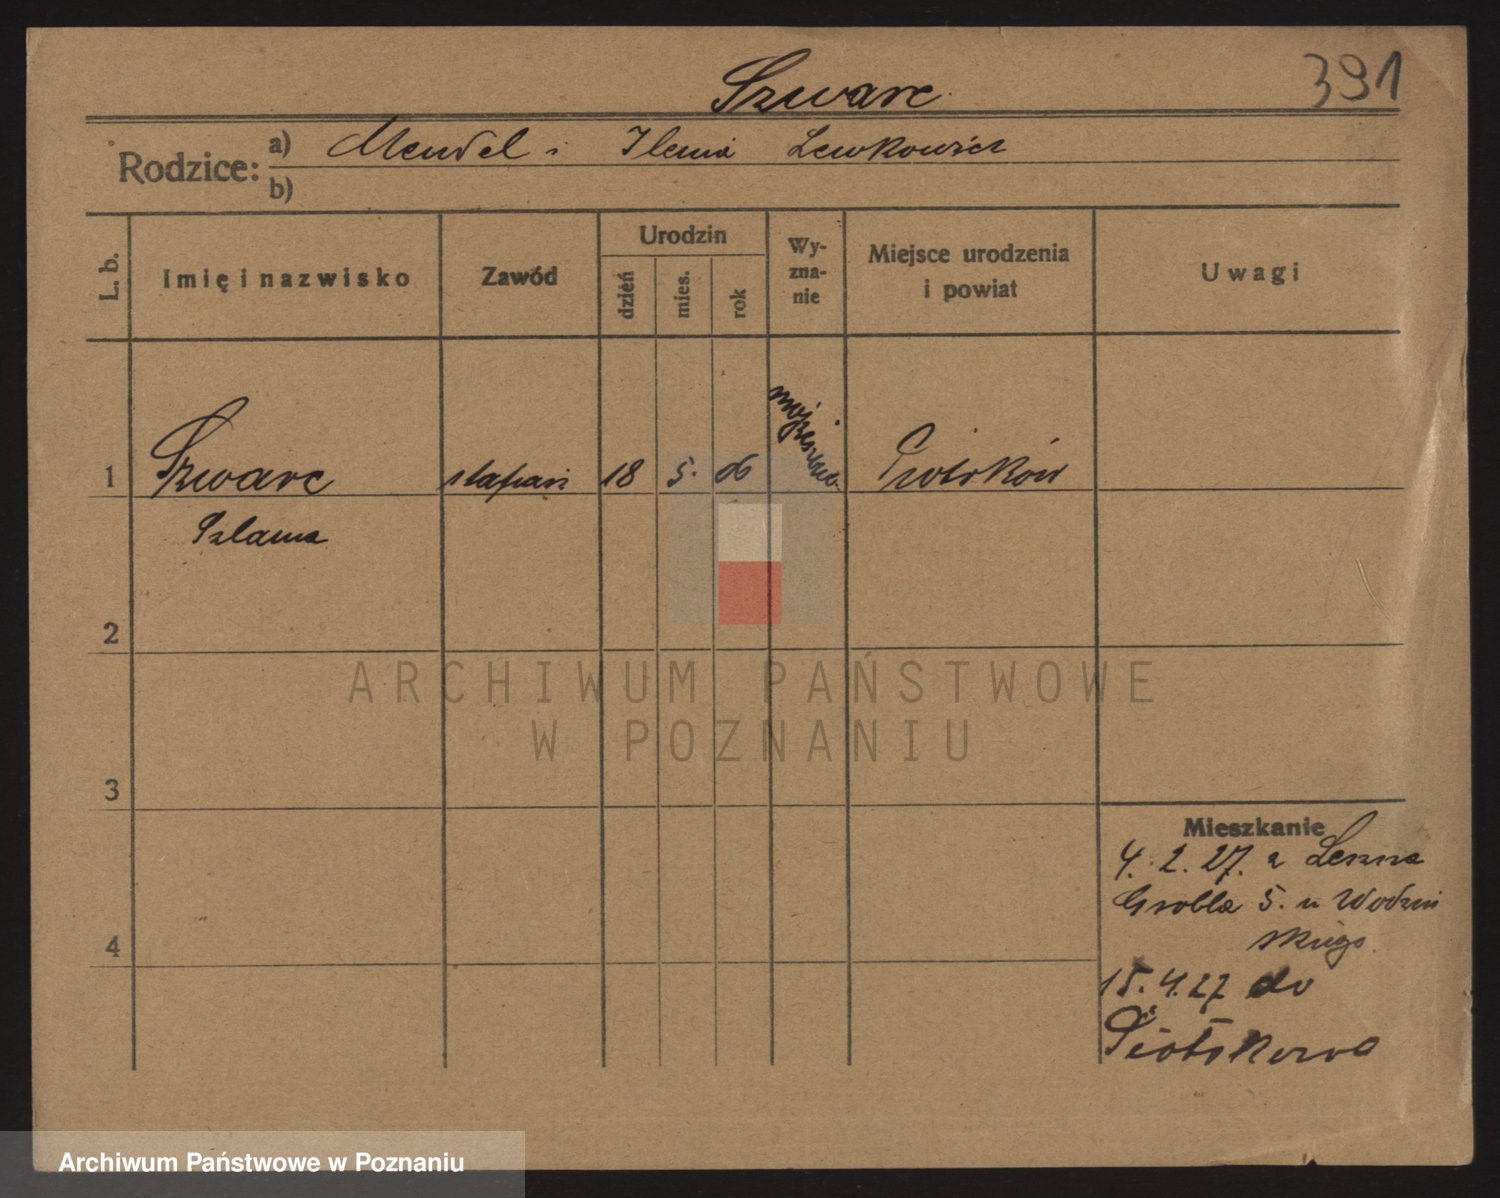 Szwarc
391
Rodzice:
a) Mendel i Lewkowicz
b)
L. b.
Imię i nazwisko
Zawód
Urodzin
dzień
mies.
rok
Wy-
zna-
nie
Miejsce urodzenia
i powiat
Uwagi
1 Szwarc 18 5. 06 Piotrków
Szlama
2
3
4
Mieszkanie
4. 2. 27. z Leszna
Grobla 5. u Wodziń
skiego.
15. 4. 27 do
Piotrkowa
ARCHIWUM PAŃSTWOWE
W POZNANIU
Archiwum Państwowe w Poznaniu